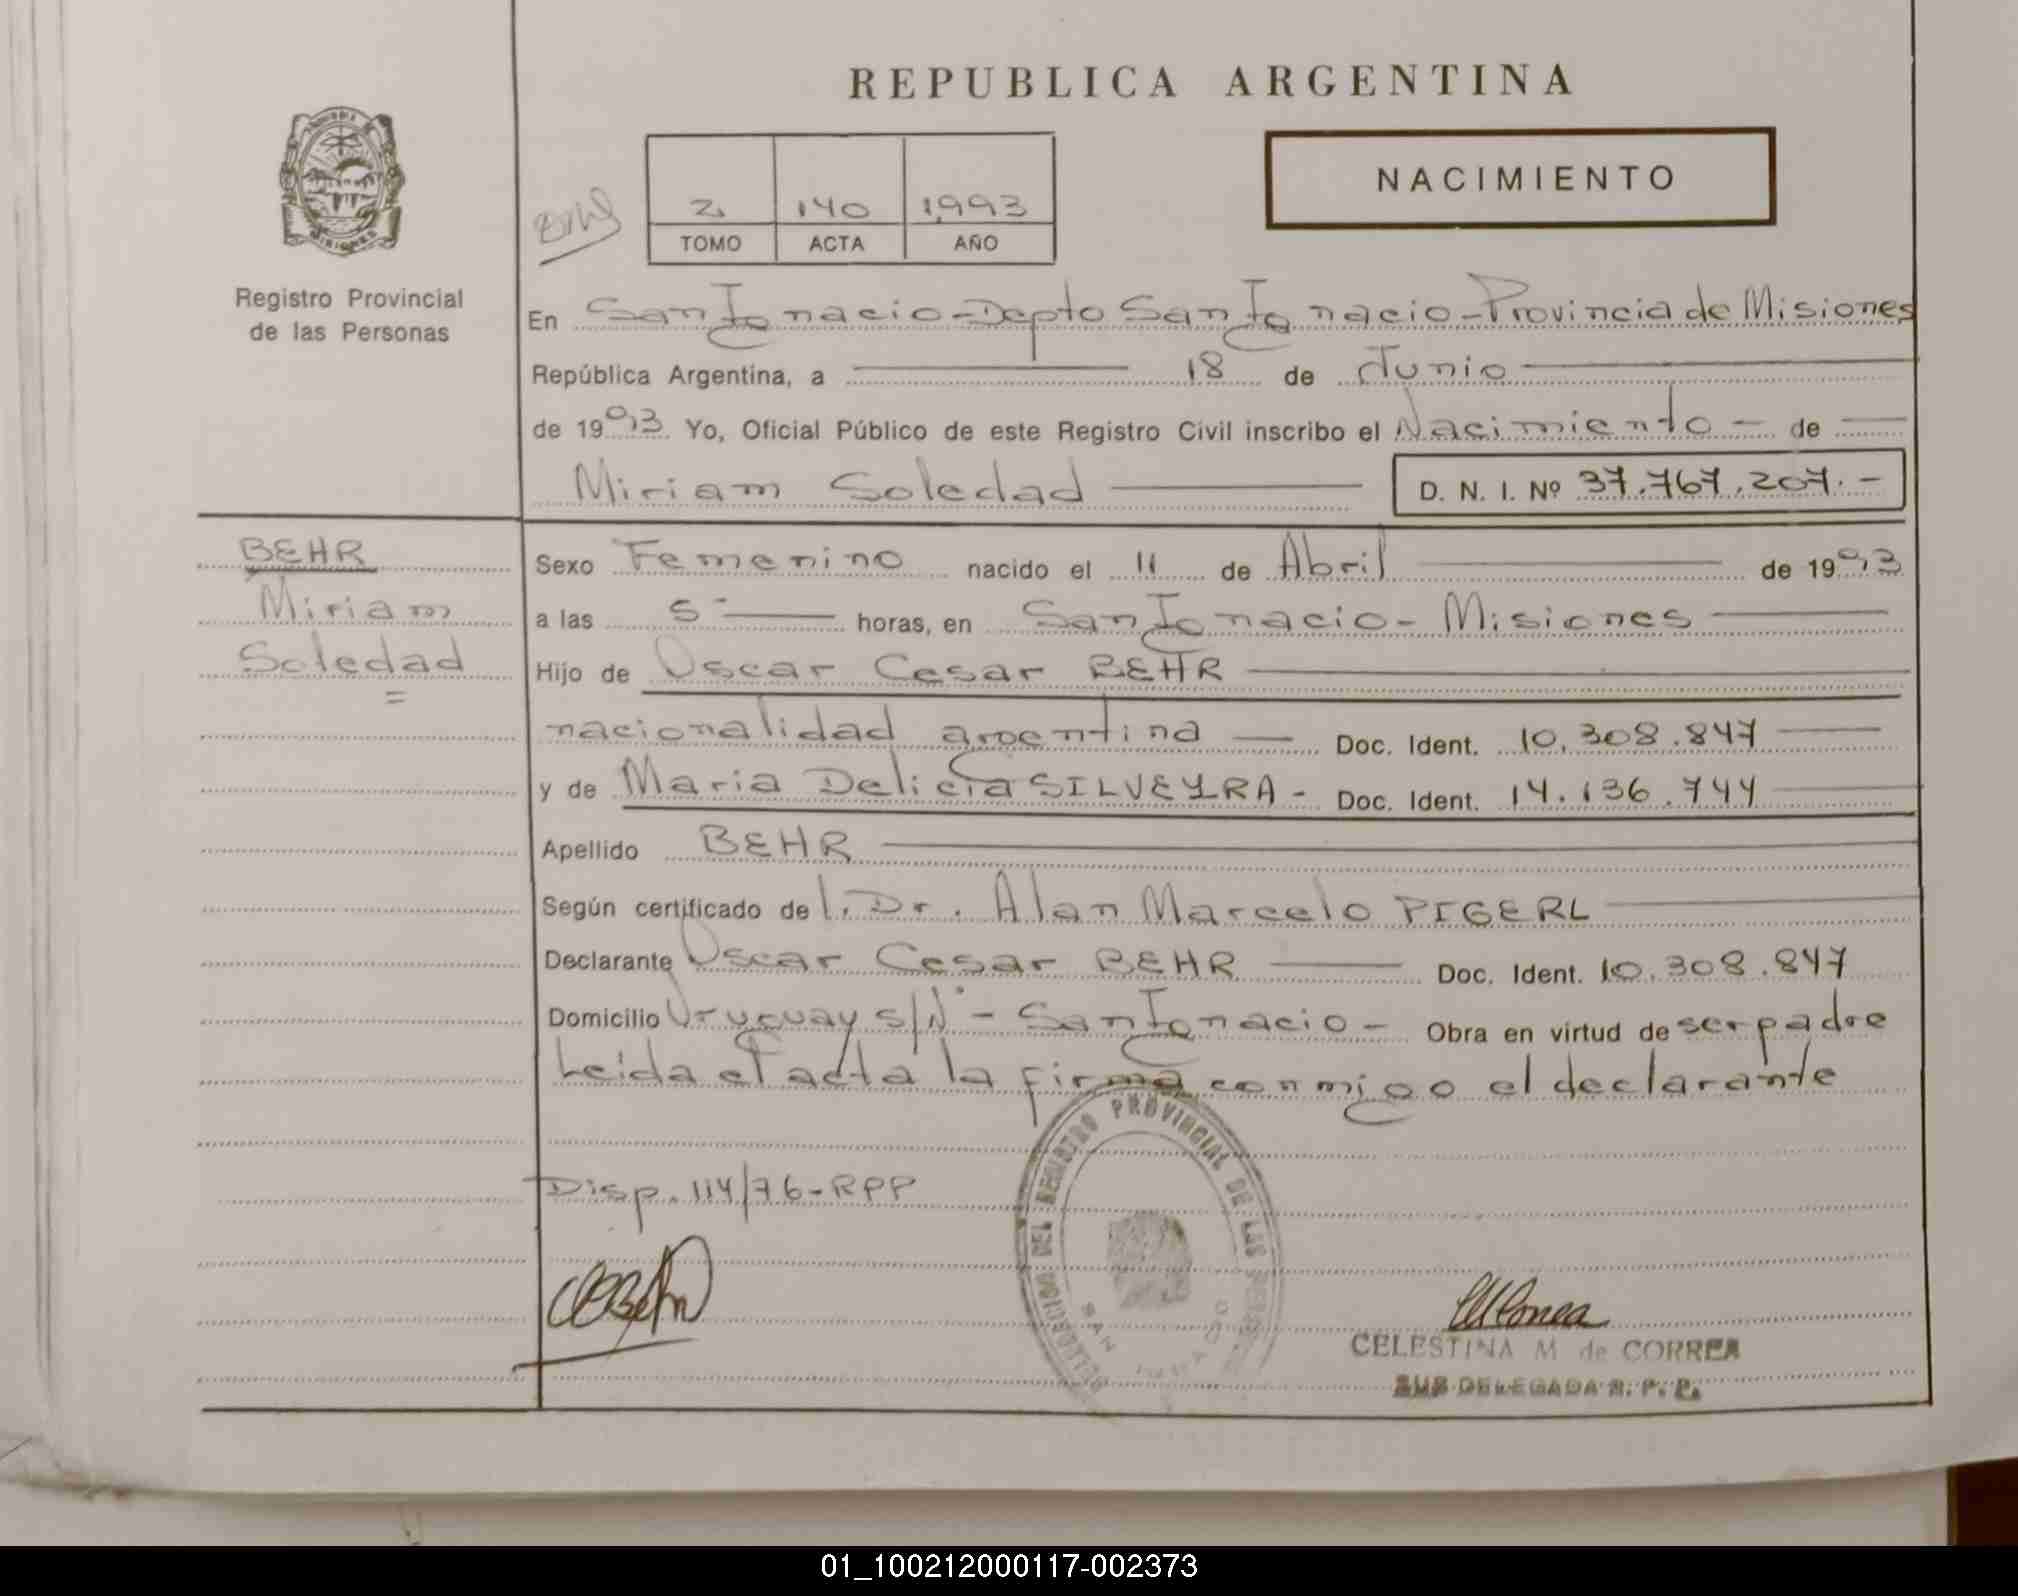 REPUBLICA ARGENTINA
NACIMIENTO
2 140 1,993
TOMO ACTA AÑO
MISIONES
Registro Provincial
de las Personas
En San Ignacio - Depto San Ignacio - Provincia de Misiones
República Argentina, a 18 de Junio
de 1993 Yo, Oficial Público de este Registro Civil inscribo el Nacimiento - de
Miriam Soledad D. N. I. Nº 37.767.207.-
BEHR
Miriam
Soledad
=
Sexo Femenino nacido el 11 de Abril de 1993
a las 5- horas, en San Ignacio - Misiones
Hijo de Oscar Cesar BEHR
nacionalidad argentina Doc. Ident. 10.308.847
y de Maria Delicia SILVEYRA - Doc. Ident. 14.136.744
Apellido BEHR
Según certificado del. Dr. Alan Marcelo PIGERL
Declarante Oscar Cesar BEHR Doc. Ident. 10.308.847
Domicilio Uruguay s/Nº - San Ignacio - Obra en virtud de ser padre
Leida el acta la firma conmigo el declarante
Disp. 114/76-RPP
DELEGACION DEL REGISTRO PROVINCIAL DE LAS
SAN IGNACIO
CELESTINA M de CORREA
SUB DELEGADA R. P. P.
01_100212000117-002373